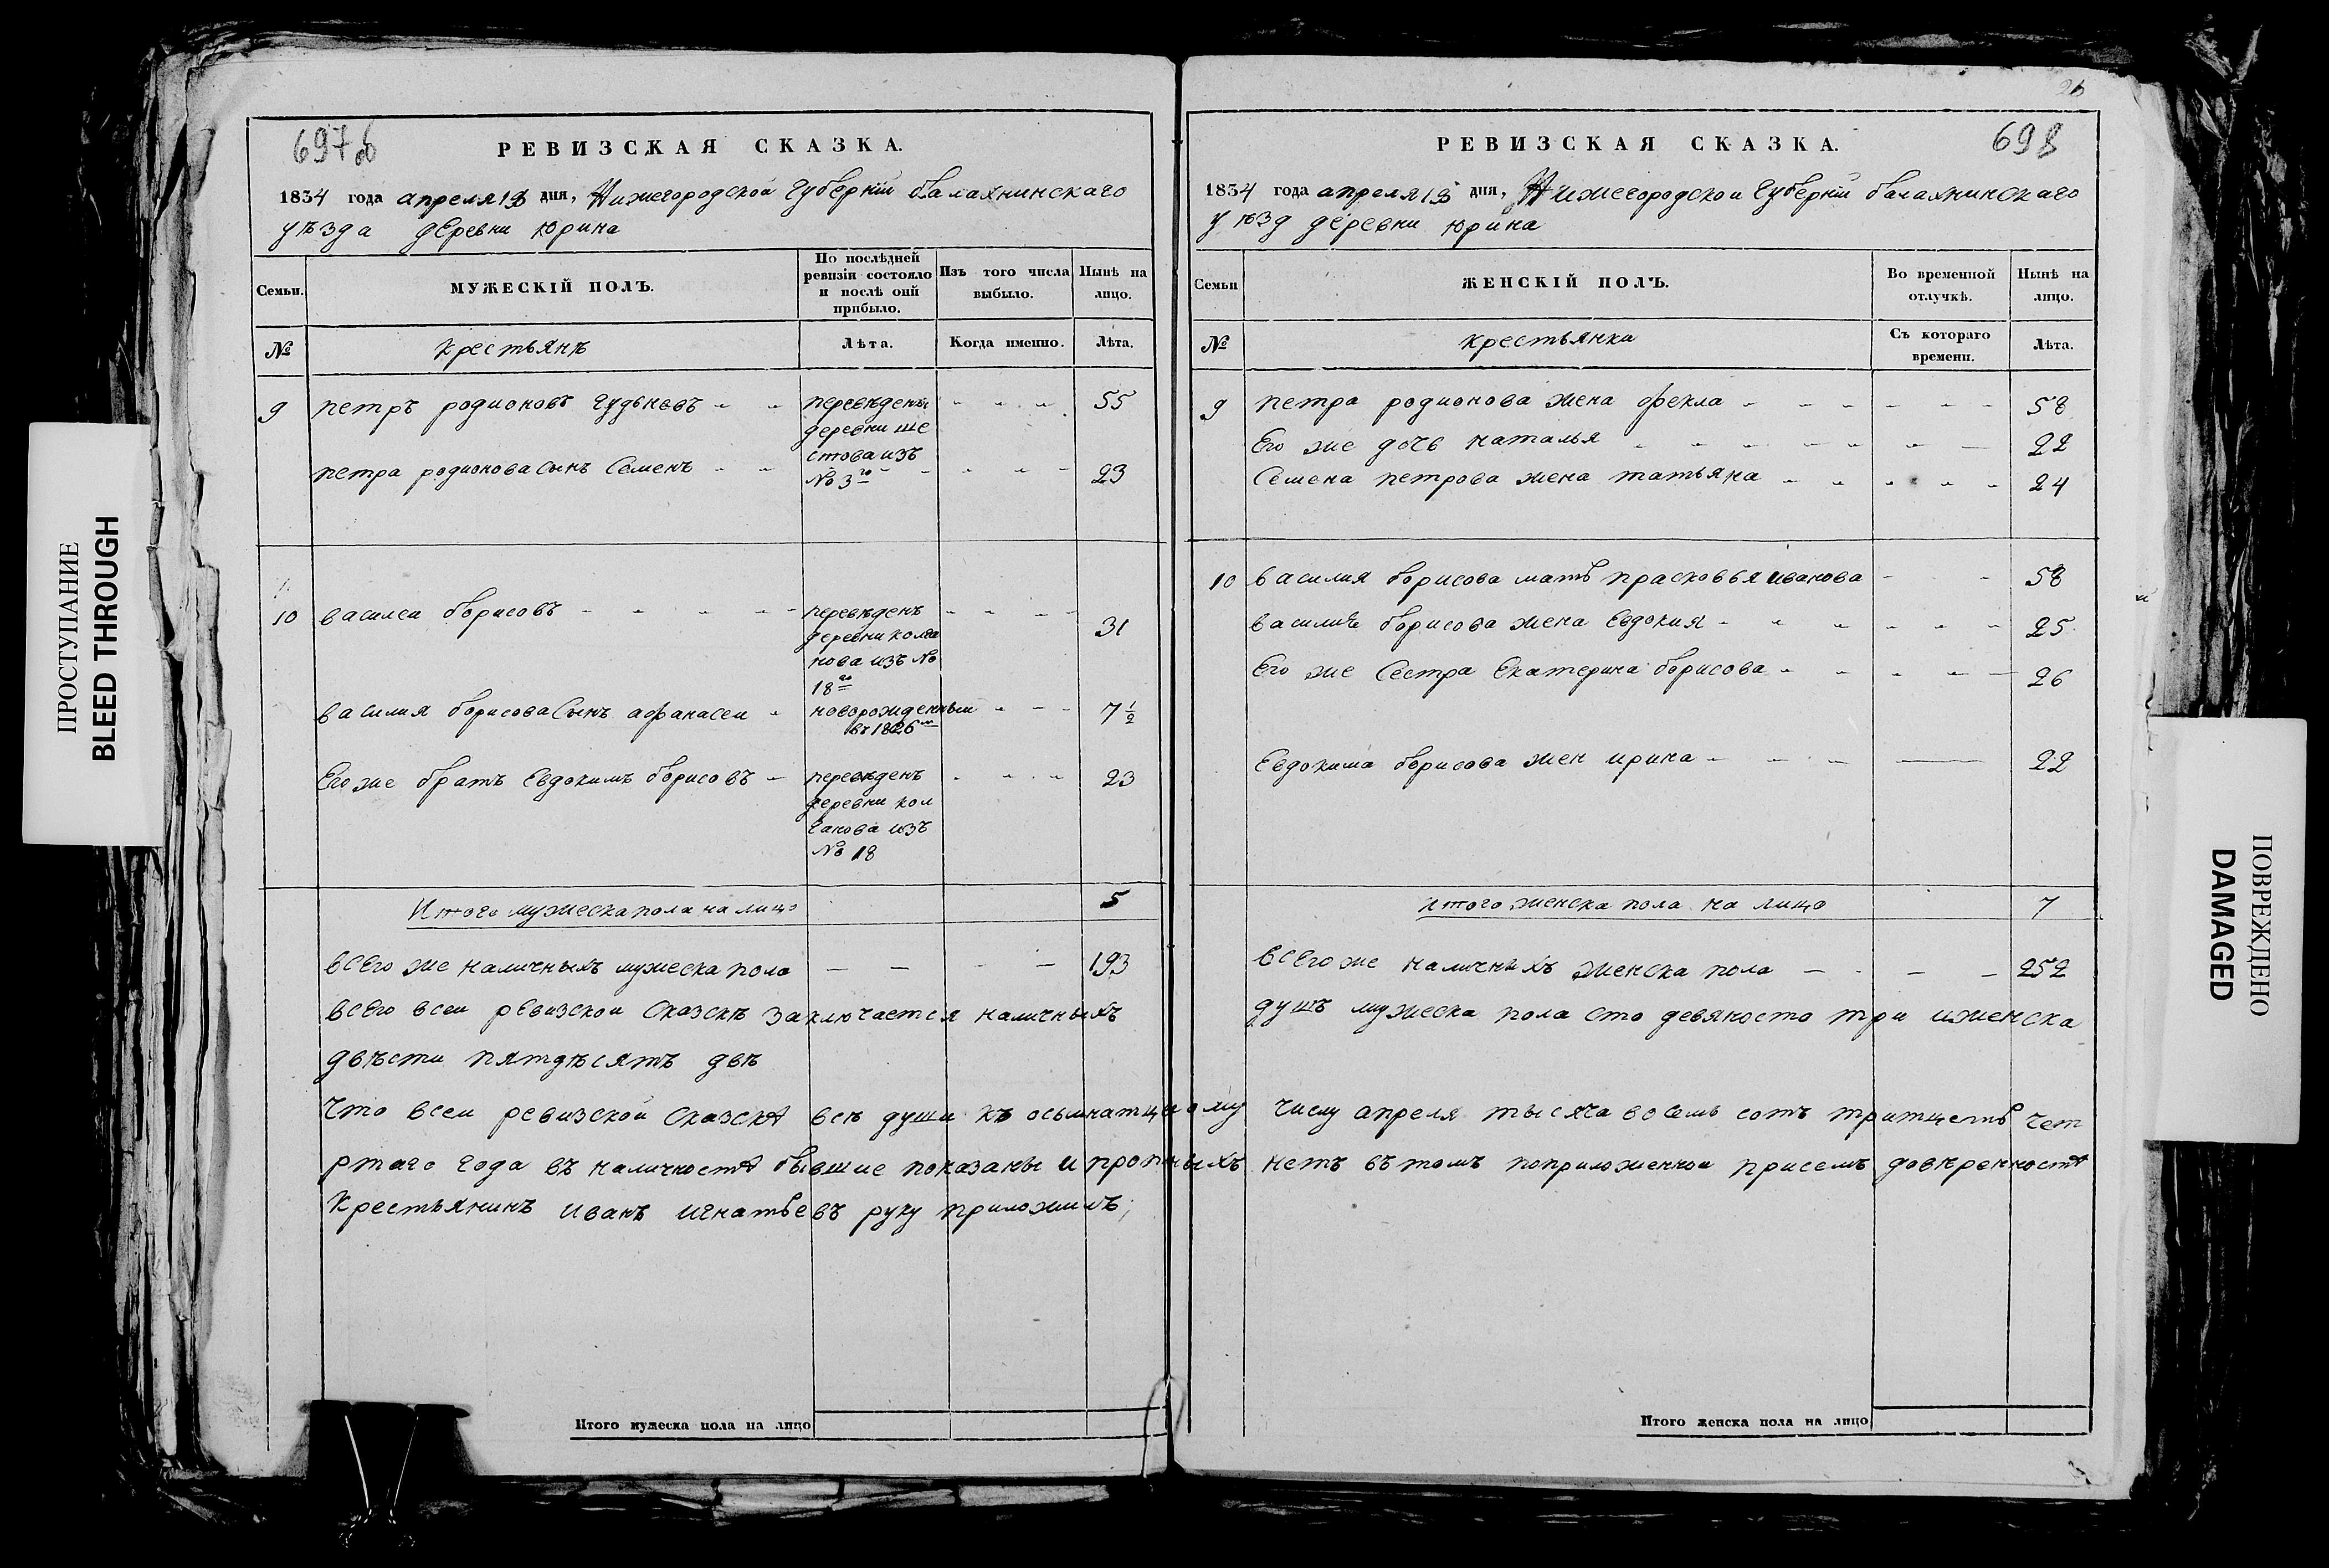 ПРОСТУПАНИЕ
BLEED THROUGH
697об
РЕВИЗСКАЯ СКАЗКА.
1834 года апреля 18 дня, Нижегородской губернiи балахнинскаго
уѣзда деревни Юрина
Семьи.
МУЖЕСКІЙ ПОЛЪ.
По послѣдней
ревизіи состояло
и послѣ оній
прибыло.
Изъ того числа
выбыло.
Нынѣ на
лицо.
№
крестьянъ
Лѣта.
Когда именно.
Лѣта.
9 петръ родионовъ - - переведены - - - 55
деревни ше
стова изъ
петра родионова сынъ Семенъ - - № 3го - - - - 23
10 василеи борисовъ - - - - - переведенъ - - - - 31
деревни колга
нова изъ №
18го
василия борисова сынъ афанасеи - новорожденныи - - - 7 1/2
въ 1826м
Его же братъ Евдокимъ борисовъ - переведенъ - - - - 23
деревни кол
ганова изъ
№ 18
Итого мужеска пола на лицо 5
всего же наличныхъ мужеска пола — — - — 193
всего всеи ревизской сказскѣ заключается наличныхъ
двѣсти пятдѣсятъ двѣ
Что всеи ревизской сказскѣ всѣ души къ осьмнатцатому
ртаго года въ наличностѣ бывшие показаны и прописныхъ
Крестьянинъ иванъ игнатьевъ руку приложилъ;
Итого мужеска пола на лицо
26
698
РЕВИЗСКАЯ СКАЗКА.
1834 года апреля 18 дня, Нижегородской губернiи балахнинскаго
уѣзд деревни Юрина
Семьи
ЖЕНСКІЙ ПОЛЪ.
Во временной
отлучкѣ.
Нынѣ на
лицо.
№
крестьянки
Съ котораго
времени.
Лѣта.
9 петра родионова жена фекла - - - - - - 58
Его же дочь наталья - - - - - - — 22
Семена петрова жена татьяна - - - - - - 24
10 василия борисова мать прасковья иванова - - 58
василия борисова жена Евдокия - - - - - - 25
Его же Сестра Екатерина борисова - - - - — 26
Евдокима борисова жен ирина - - — —— 22
итого женска пола на лицо 7
всего же наличныхъ женска пола — - — — 252
душъ мужеска пола сто девяносто три иженска
числу апреля тысяча восемь сотъ тритцеть чет
нетъ въ томъ поприложеннои присемъ довѣренностѣ
Итого женска пола на лицо
ПОВРЕЖДЕНО
DAMAGED